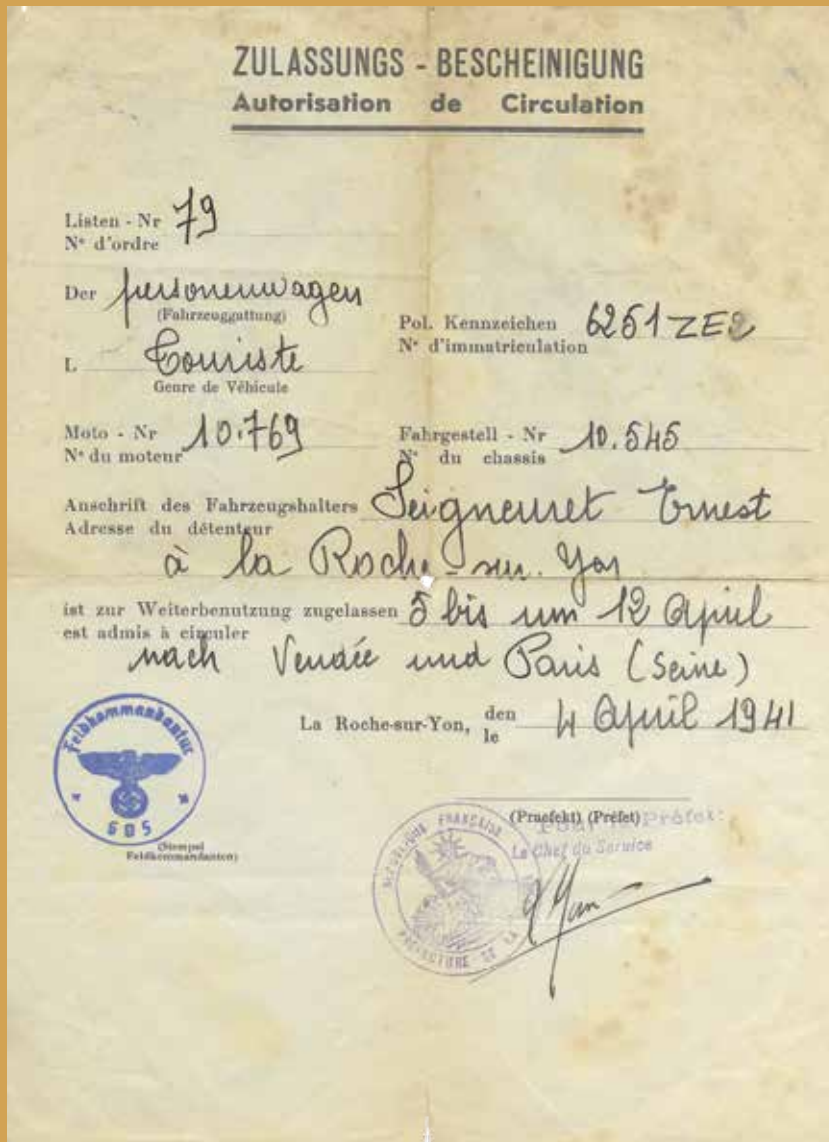 ZULASSUNGS - BESCHEINIGUNG
Autorisation de Circulation
Listen - Nr 79
N° d'ordre
Der personenwagen
(Fahrzeuggattung)
Pol. Kennzeichen 6251 ZE2
N° d'immatriculation
L Touriste
Genre de Véhicule
Moto - Nr 10.769
N° du moteur
Fahrgestell - Nr 10.545
N° du chassis
Anschrift des Fahrzeugshalters Seigneuret Ernest
Adresse du détenteur
à la Roche-sur-Yon
ist zur Weiterbenutzung zugelassen 5 bis um 12 April
est admis à circuler
nach Vendée und Paris (Seine)
La Roche-sur-Yon, den 4 April 1941
le
Feldkommandantur
605
(Stempel
Feldkommandanten)
(Praefekt) (Préfet)
Pour le Préfet:
Le Chef du Service
RÉPUBLIQUE FRANÇAISE
PRÉFECTURE DE LA